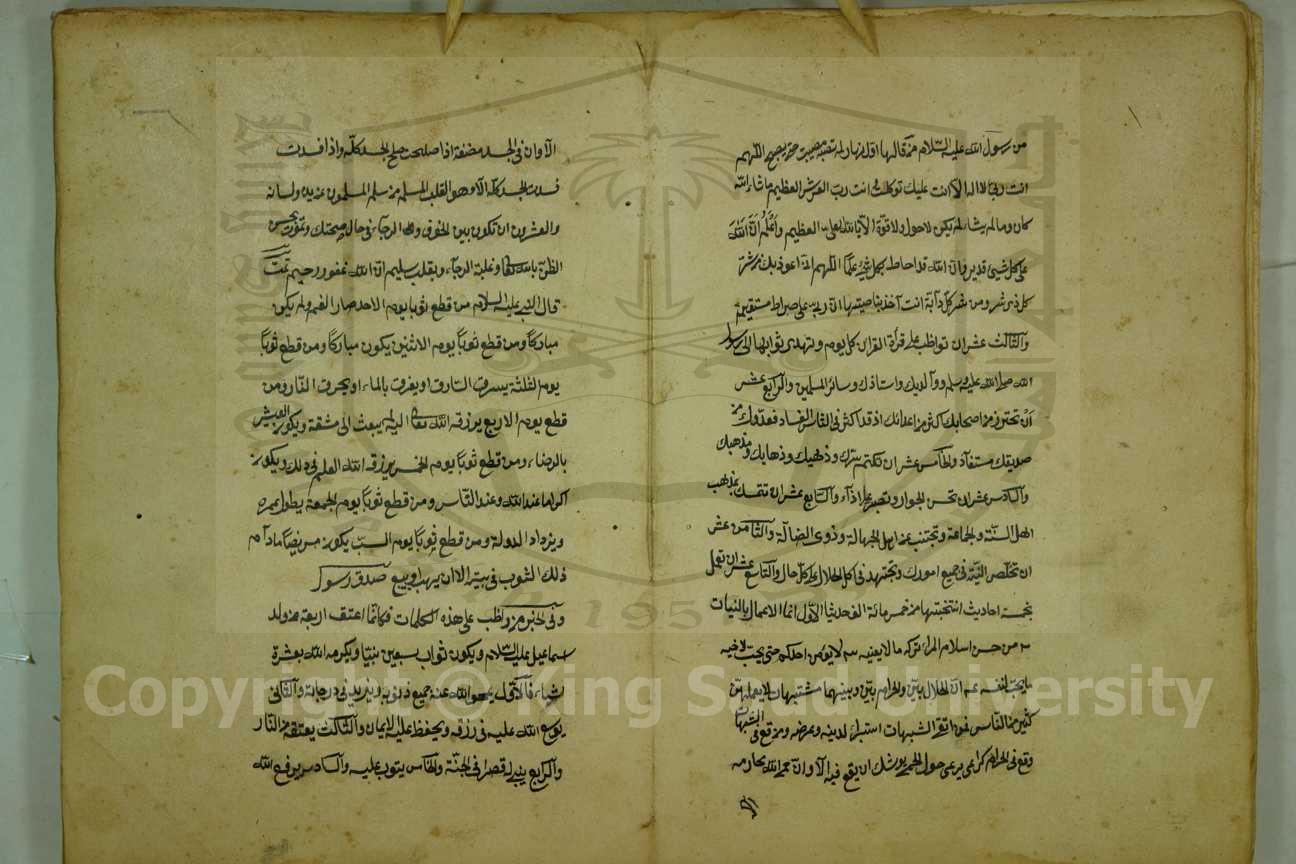 من رسول الله عليه السلام من قالها اول نهاره لم تصبه مصيبت حتى يصبح اللهم
انت ربى لا اله الا انت عليك توكلت انت ربّ العرش العظيم ما شاء الله
كان وما لم يشاء لم يكن لا حول ولا قوّة الّا بالله العلى العظيم واعلم انّ الله
على كل شيئ قدير وانّ الله قد احاط بكل شيئ علمًا اللّهم انى اعوذ بك من شر
كل ذى شر ومن شر كلّ دابة انت آخذ بناصيتها انّ ربى على صراط مستقيم
والثّالث عشر ان تواظب على قرأة القران كل يوم وتهدى ثوابها الى رسول
الله صلى الله عليه وسلم ووالديك واستاذك وسائر المسلمين والرّابع عشر
ان تحترز من اصحابك اكثر من اعدائك اذ قد اكثر فى النّاس الفساد فعدوّك من
صديقك مستفاد والخامس عشر ان تكتم سرّك وذهبك وذهابك ومذهبك
والسّادس عشر ان تحسن الجوار وتصبر على اذاه والسّابع عشر ان تتمسّك بمذهب
اهل السّنّة والجماعة وتجتنب عن اهل الجهالة وذوى الضالّة والثّامن عشر
ان تخلّص النيّة فى جميع امورك وتجتهد فى اكل الحلال على كلّ حال والتّاسع عشر ان تعمل
بخمسة احاديث انتخبتها من خمسمائة الف حديث الاوّل انّما الاعمال بالنيات
من حسن اسلام المرا تركه ما لا يعنيه لا يؤمن احدكم حتى يحبّ لاخيه
ما يحبّ لنفسه انّ الحلال بيّن والحرام بيّن وبينهما مشتبهات لا يعلمهنّ
كثير من النّاس فمن اتقى الشبهات استبراء لدينه وعرضه ومن وقع فى الشبهات
وقع فى الحرام كراعى يرعى حول الحمى يوشك ان يقع فيه الا وانّ حمى الله محارمه
الا
الا وان فى الجسد مضغة اذا صلحت صلح الجسد كلّه واذا فسدت
فسدت الجسد كلّه الا وهو القلب المسلم من سلم المسلمون عن يده ولسانه
والعشرون ان تكون بين الخوف والرجاء فى حال صحتك وتموت بحسن
الظنّ بالله تعالى وغلبة الرجاء وبقلب سليم انّ الله غفور رحيم تمّت
قال النّبى عليه السّلام من قطع ثوبا يوم الاحد صار الغم ولم يكن
مباركًا ومن قطع ثوبًا يوم الاثنين يكون مباركًا ومن قطع ثوبًا
يوم الثلثة يسرق السّارق او يغرق بالماء او يحرق النّار ومن
قطع يوم الاربع يرزقه الله تعالى اليه يبعث الى مشقة ويكون العيش
بالرضاء ومن قطع ثوبًا يوم الخمس يرزقه الله العلم فى ذلك ويكون
اكراما عند الله وعند النّاس ومن قطع ثوبًا يوم الجمعة يطول عمره
ويزداد الدولة ومن قطع ثوبًا يوم السبت يكون مريضًا ما دام
ذلك الثوب فى بيته الا ان يهب او يبيع صدق رسول
وفى الخبر من واظب على هذه الكلمات فكانّما اعتق اربعة من ولد
اسماعيل عليه السّلام ويكون ثواب سبعين نبيّا ويكرمه الله بعشرة
اشياء فالاوّل يمحو الله عنه جميع ذنوبه ويزيد فى درجاته والثّانى
يوسع الله عليه فى رزقه ويحفظ عليه الايمان والثّالث يعتقه من النّار
والرّابع يبنى له قصرا فى الجنّة والخامس يتوب عليه والسّادس يرفع الله
Copyright © King Saud University
1957